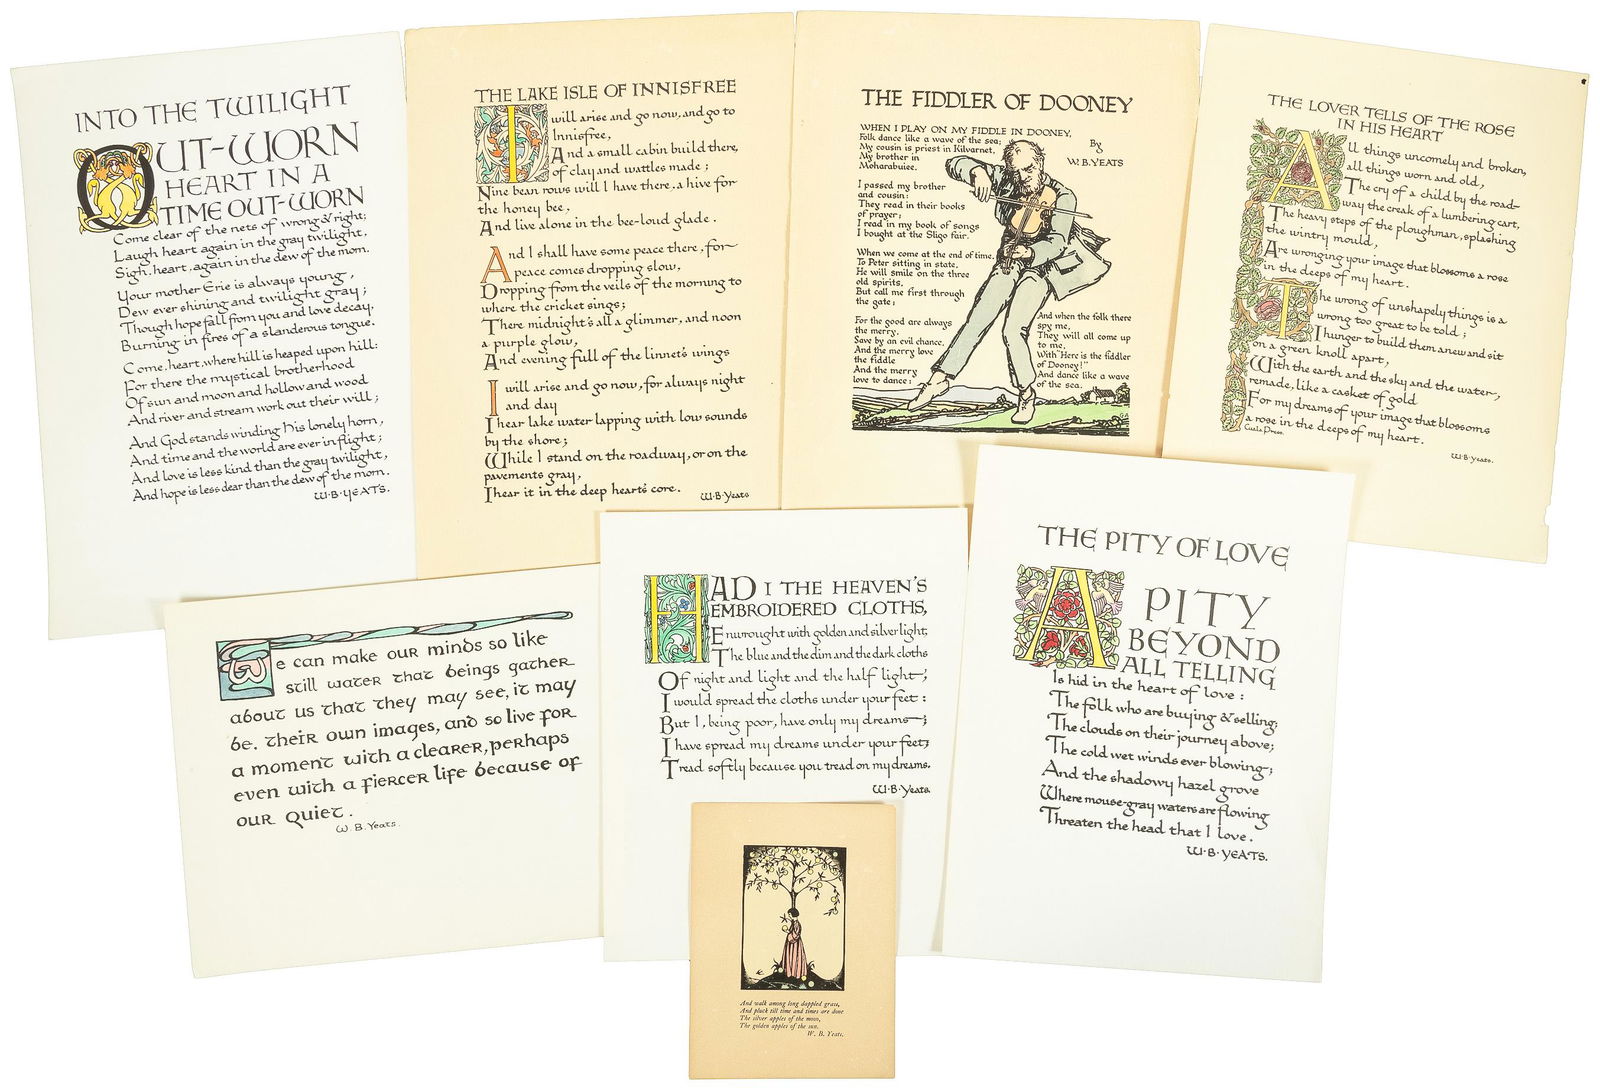 INTO THE TWILIGHT
OUT-WORN
HEART IN A
TIME OUT-WORN
Come clear of the nets of wrong & right;
Laugh heart again in the gray twilight,
Sigh, heart, again in the dew of the morn.
Your mother Erie is always young,
Dew ever shining and twilight gray;
Though hope fall from you and love decay.
Burning in fires of a slanderous tongue.
Come, heart, where hill is heaped upon hill:
For there the mystical brotherhood
Of sun and moon and hollow and wood
And river and stream work out their will;
And God stands winding his lonely horn,
And time and the world are ever in flight;
And love is less kind than the gray twilight,
And hope is less dear than the dew of the morn.
W·B·YEATS.
THE LAKE ISLE OF INNISFREE
I will arise and go now, and go to
Innisfree,
And a small cabin build there,
of clay and wattles made;
Nine bean rows will I have there, a hive for
the honey bee,
And live alone in the bee-loud glade.
And I shall have some peace there, for
peace comes dropping slow,
Dropping from the veils of the morning to
where the cricket sings;
There midnight's all a glimmer, and noon
a purple glow,
And evening full of the linnet's wings
I will arise and go now, for always night
and day
I hear lake water lapping with low sounds
by the shore;
While I stand on the roadway, or on the
pavements gray,
I hear it in the deep heart's core.
W·B·Yeats
THE FIDDLER OF DOONEY
By
W.B.YEATS
WHEN I PLAY ON MY FIDDLE IN DOONEY,
Folk dance like a wave of the sea;
My cousin is priest in Kilvarnet,
My brother in
Moharabuiee.
I passed my brother
and cousin:
They read in their books
of prayer;
I read in my book of songs
I bought at the Sligo fair.
When we come at the end of time,
To Peter sitting in state,
He will smile on the three
old spirits,
But call me first through
the gate;
For the good are always
the merry,
Save by an evil chance,
And the merry love
the fiddle
And the merry
love to dance:
And when the folk there
spy me,
They will all come up
to me,
With "Here is the fiddler
of Dooney!"
And dance like a wave
of the sea.
GA
THE LOVER TELLS OF THE ROSE
IN HIS HEART
All things uncomely and broken,
all things worn and old,
The cry of a child by the road-
way the creak of a lumbering cart,
The heavy steps of the ploughman, splashing
the wintry mould,
Are wronging your image that blossoms a rose
in the deeps of my heart.
The wrong of unshapely things is a
wrong too great to be told;
I hunger to build them anew and sit
on a green knoll apart,
With the earth and the sky and the water,
remade, like a casket of gold
For my dreams of your image that blossoms
a rose in the deeps of my heart.
Cuala Press.
W·B·Yeats.
We can make our minds so like
still water that beings gather
about us that they may see, it may
be. their own images, and so live for
a moment with a clearer, perhaps
even with a fiercer life because of
our quiet.
W. B. Yeats.
HAD I THE HEAVEN'S
EMBROIDERED CLOTHS,
Enwrought with golden and silver light,
The blue and the dim and the dark cloths
Of night and light and the half light;
I would spread the cloths under your feet:
But I, being poor, have only my dreams;
I have spread my dreams under your feet;
Tread softly because you tread on my dreams.
W·B·Yeats.
THE PITY OF LOVE
A PITY
BEYOND
ALL TELLING
Is hid in the heart of love:
The folk who are buying & selling;
The clouds on their journey above;
The cold wet winds ever blowing;
And the shadowy hazel grove
Where mouse-gray waters are flowing
Threaten the head that I love.
W·B·YEATS.
And walk among long dappled grass,
And pluck till time and times are done
The silver apples of the moon,
The golden apples of the sun.
W. B. Yeats.